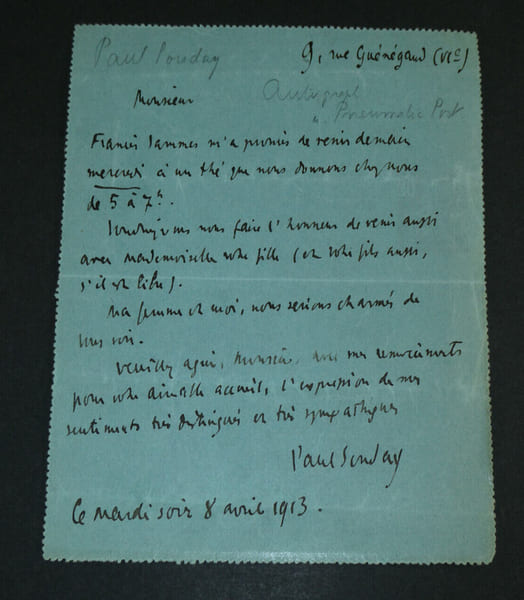 Paul Souday
9, rue Guénégaud (VIe)
Autograph
" Pneumatic Post
Monsieur
Francis Jammes m'a promis de venir demain
mercredi à un thé que nous donnons chez nous
de 5 à 7h.
Voudriez-vous nous faire l'honneur de venir aussi
avec Mademoiselle votre fille (et votre fils aussi,
s'il est libre).
Ma femme et moi, nous serions charmés de
vous voir.
Veuillez agréer, Monsieur, avec mes remerciements
pour votre aimable accueil, l'expression de mes
sentiments très distingués et très sympathiques
Paul Souday
Ce mardi soir 8 avril 1913.